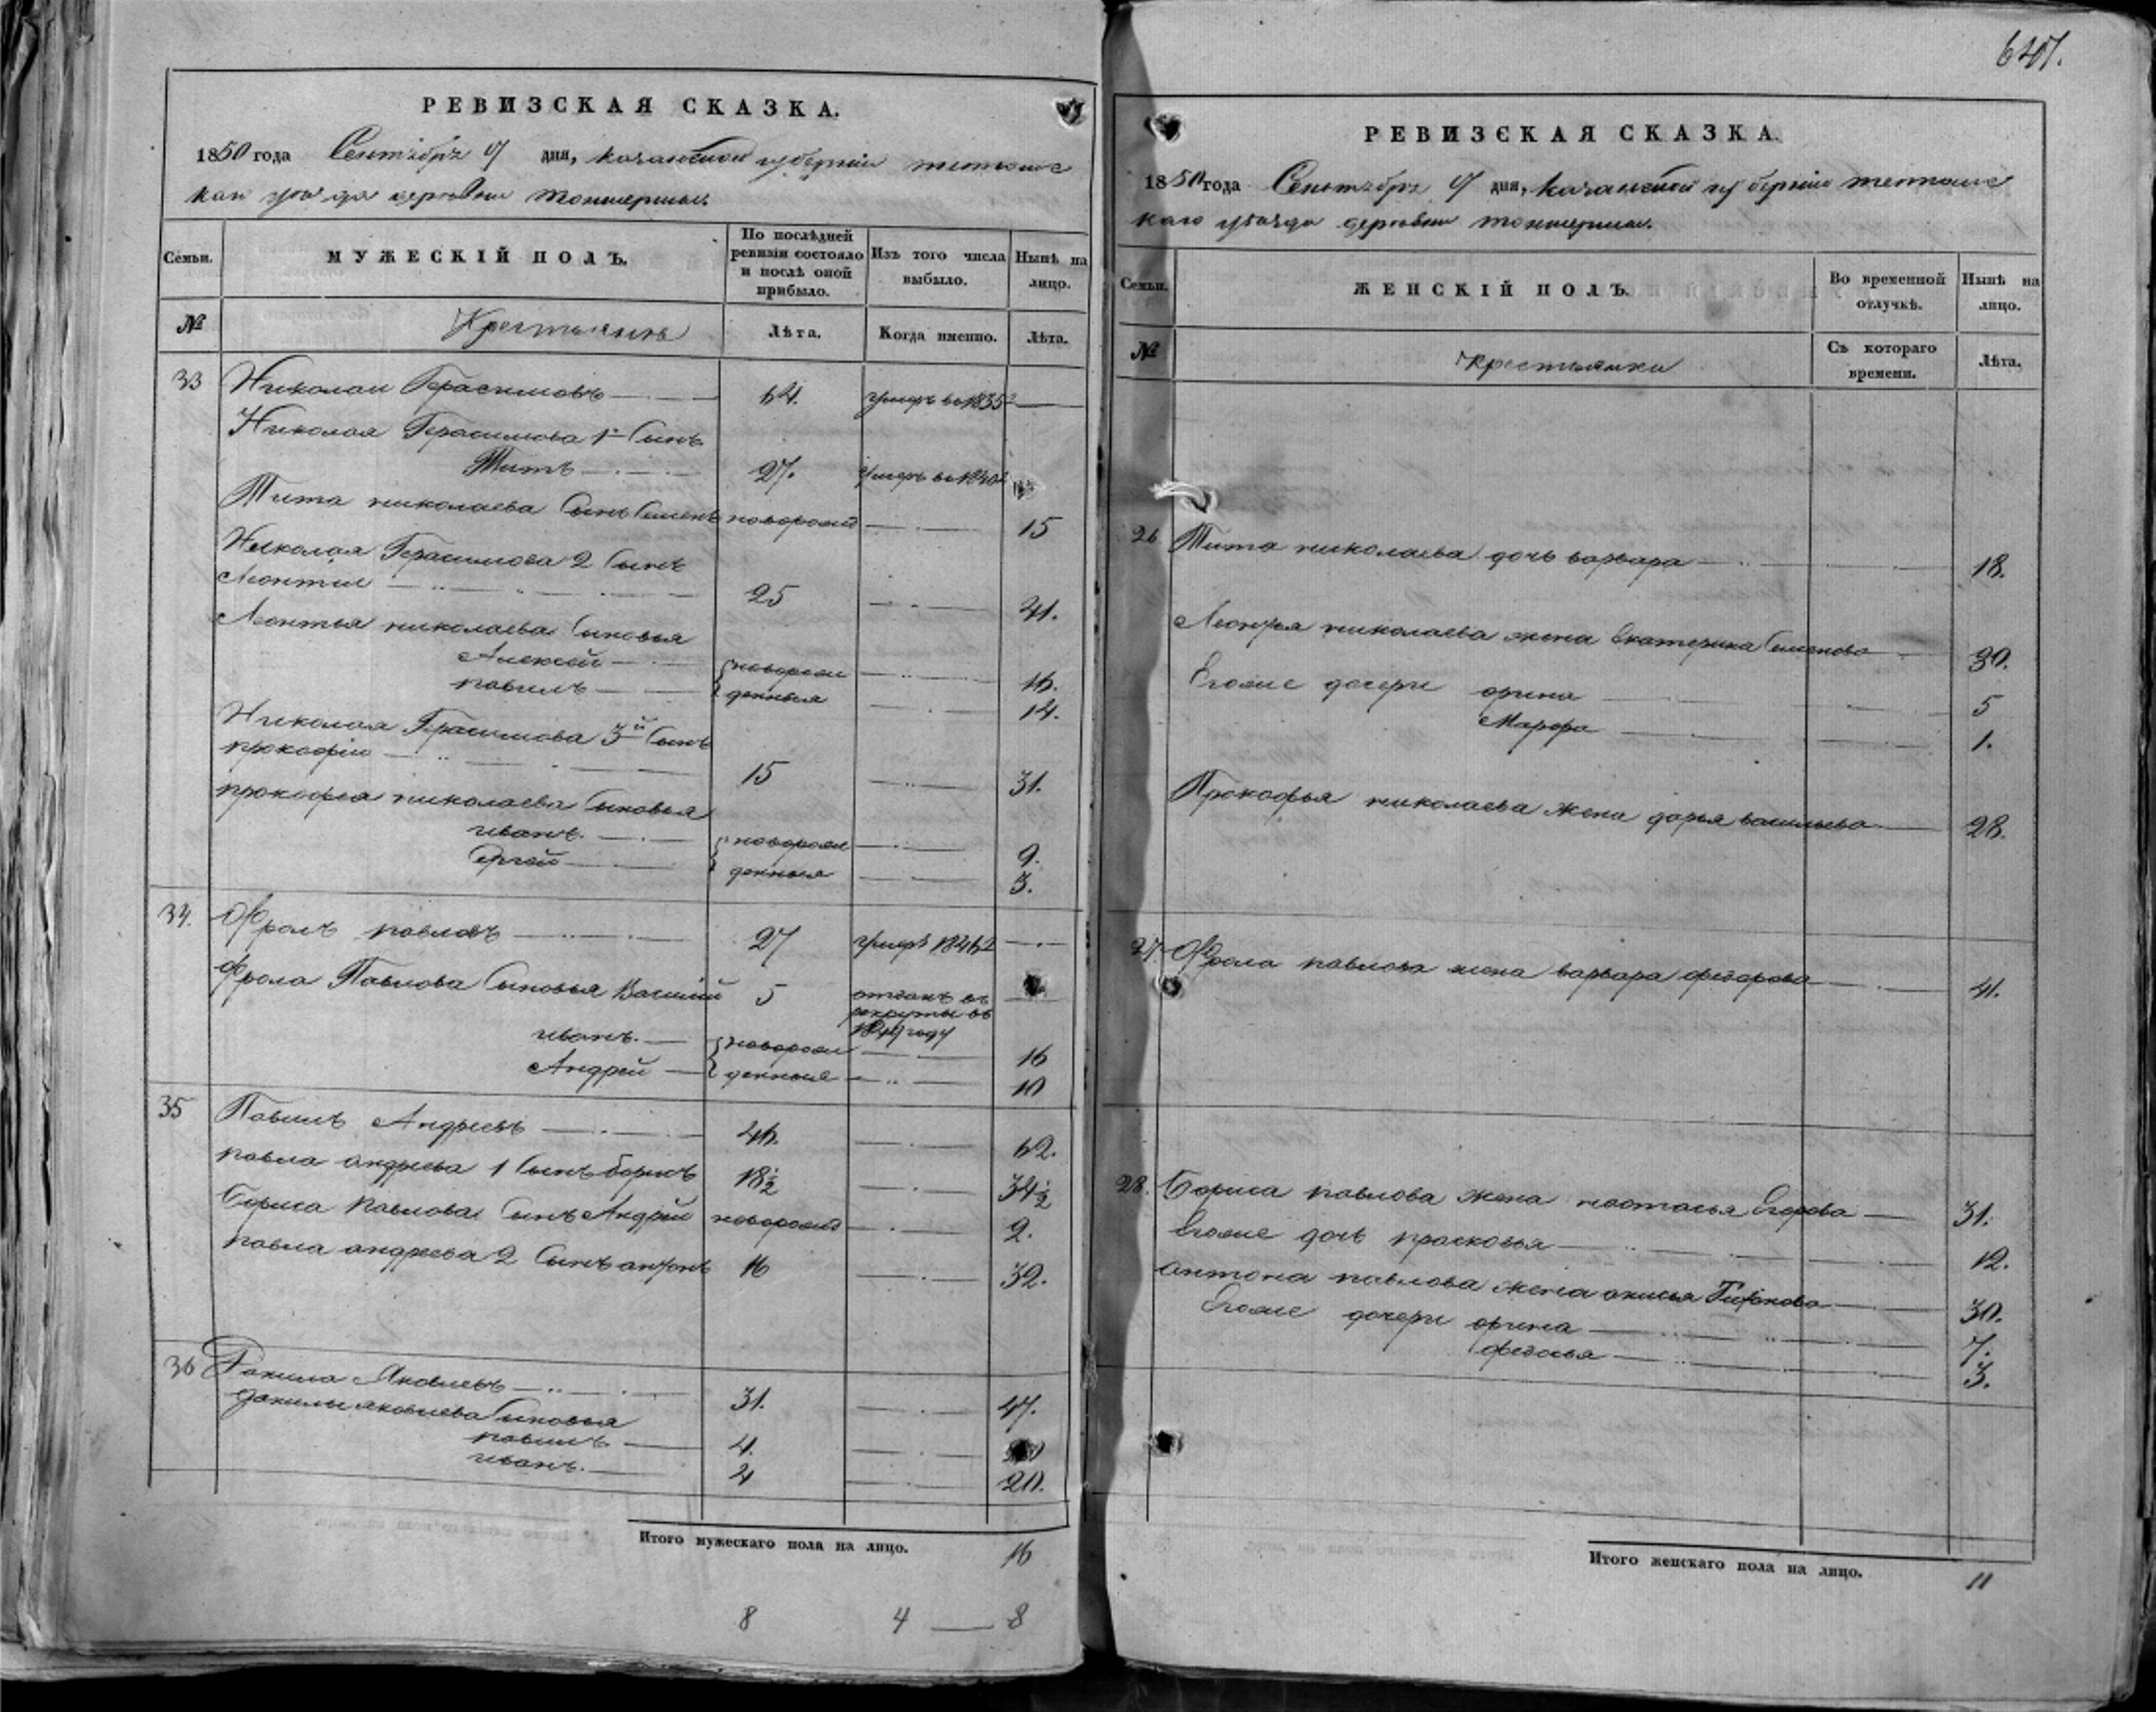 РЕВИЗСКАЯ СКАЗКА.
1850 года Сентября 9 дня, казанской губернии тетюшс
каго уезда деревни
Семьи.
МУЖЕСКІЙ ПОЛЪ.
По послѣдней ревизіи состояло и послѣ оной прибыло.
Изъ того числа выбыло.
Нынѣ на лицо.
№
Крестьянъ
Лѣта.
Когда именно.
Лѣта.
33 Николай Герасимовъ 64. умеръ въ 1835
Николая Герасимова 1й Сынъ
Титъ 27. умеръ въ 1840
Тита николаева Сынъ Семенъ новорожд 15
Николая Герасимова 2 Сынъ
Леонтий 25 41.
Леонтья николаева Сыновья
Алексей новорож 16.
павилъ денныя 14.
Николая Герасимова 3й Сынъ
прокофій 15 31.
прокофья николаева Сыновья
иванъ. новорож 9.
Сергей денныя 3.
34. Фролъ павловъ 27 умеръ 1846
Фрола Павлова Сыновья Василий 5 отданъ въ
рекруты въ
1849 году
иванъ. новорож 16
Андрей денныя 10
35 Павилъ Андреевъ 46. 62.
павла андреева 1 Сынъ борисъ 18½ 34½
бориса Павлова Сынъ Андрей новорожд 9.
павла андреева 2 Сынъ антонъ 16 32.
36 Данила Яковлевъ 31. 47.
данилы яковлева Сыновья
павилъ 4.
иванъ. 4 20.
Итого мужескаго пола на лицо. 16
8 4 — 8
6401.
РЕВИЗСКАЯ СКАЗКА.
1850 года Сентября 9 дня, казанской губернии тетюшс
каго уезда деревни
Семьи.
ЖЕНСКІЙ ПОЛЪ.
Во временной отлучкѣ.
Нынѣ на лицо.
№
крестьянки
Съ котораго времени.
Лѣта.
26 Тита николаева дочь варвара 18.
Леонтья николаева жена Екатерина Семенова 30.
Егоже дочери орина 5
Марфа 1.
Прокофья николаева жена дарья васильева 28.
27 Фрола павлова жена варвара федорова 41.
28. Бориса павлова жена настасья Егорова 31.
Егоже дочь прасковья 12.
антона павлова жена анисья 30.
Егоже дочери орина 7.
федосья 3.
Итого женскаго пола на лицо. 11